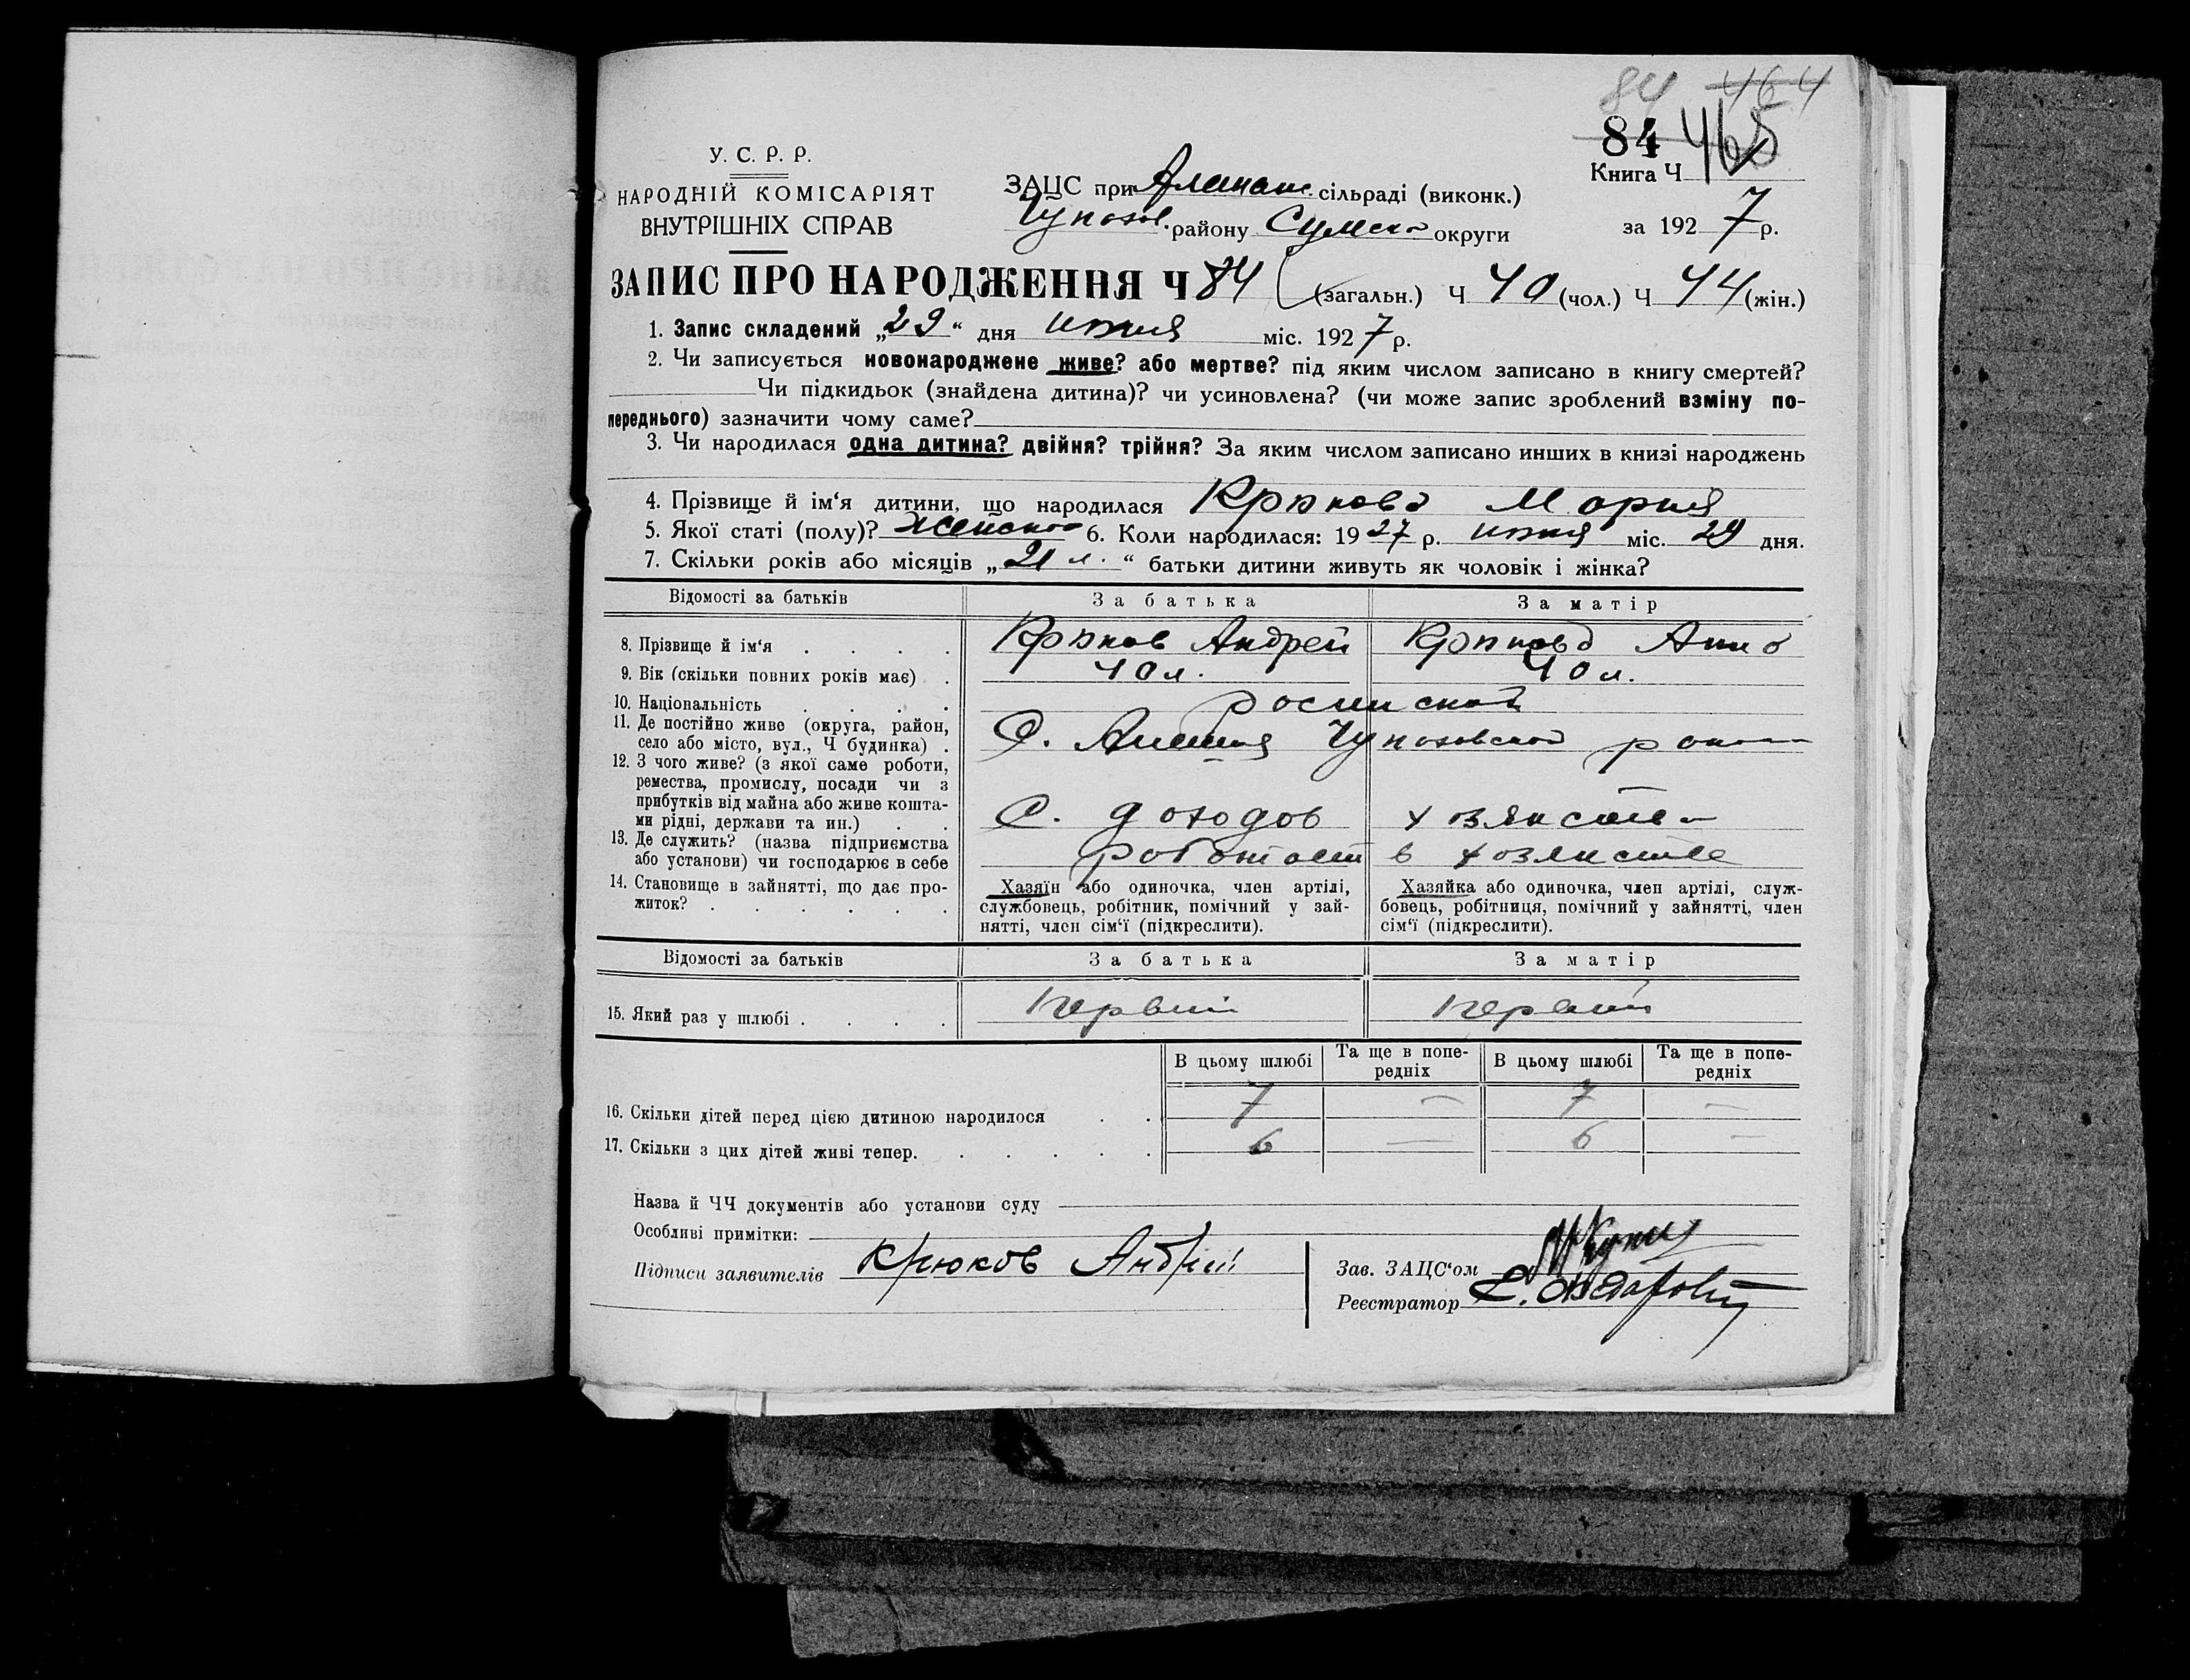 84 464
84 465
У. С. Р. Р.
НАРОДНІЙ КОМІСАРІЯТ
ВНУТРІШНІХ СПРАВ
Книга Ч
ЗАЦС при сільраді (виконк.)
району Сумско округи
за 1927 р.
ЗАПИС ПРО НАРОДЖЕННЯ Ч 84 (загальн.) Ч 40 (чол.) Ч 44 (жін.)
1. Запис складений „29“ дня міс. 1927 р.
2. Чи записується новонароджене живе? або мертве? під яким числом записано в книгу смертей?
Чи підкидьок (знайдена дитина)? чи усиновлена? (чи може запис зроблений взміну по-
переднього) зазначити чому саме?
3. Чи народилася одна дитина? двійня? трійня? За яким числом записано инших в книзі народжень
4. Прізвище й ім‘я дитини, що народилася Крюкова Мария
5. Якої статі (полу)? Женской 6. Коли народилася: 1927 р. міс. 29 дня.
7. Скільки років або місяців „21 л.“ батьки дитини живуть як чоловік і жінка?
Відомості за батьків За батька За матір
8. Прізвище й ім‘я . . . . Крюков Андрей Крюкова Анна
9. Вік (скільки повних років має) . 40 л. 40 л.
10. Національність . . . . росийской
11. Де постійно живе (округа, район,
село або місто, вул., Ч будинка) . С.
12. З чого живе? (з якої саме роботи,
ремества, промислу, посади чи з
прибутків від майна або живе кошта-
ми рідні, держави та ин.) . . С. доходов хозяйства
13. Де служить? (назва підприємства
або установи) чи господарює в себе работает в хозяйстве
14. Становище в зайнятті, що дає про-
житок? . . . . . .
Хазяїн або одиночка, член артілі,
службовець, робітник, помічний у зай-
нятті, член сім‘ї (підкреслити).
Хазяйка або одиночка, член артілі, служ-
бовець, робітниця, помічний у зайнятті, член
сім‘ї (підкреслити).
Відомості за батьків За батька За матір
15. Який раз у шлюбі . . . . первий первий
В цьому шлюбі Та ще в попе-
редніх В цьому шлюбі Та ще в попе-
редніх
16. Скільки дітей перед цією дитиною народилося . . 7 — 7 —
17. Скільки з цих дітей живі тепер. . . . . . 6 — 6 —
Назва й ЧЧ документів або установи суду
Особливі примітки:
Підписи заявителів Крюков Андрій
Зав. ЗАЦС‘ом
Реєстратор